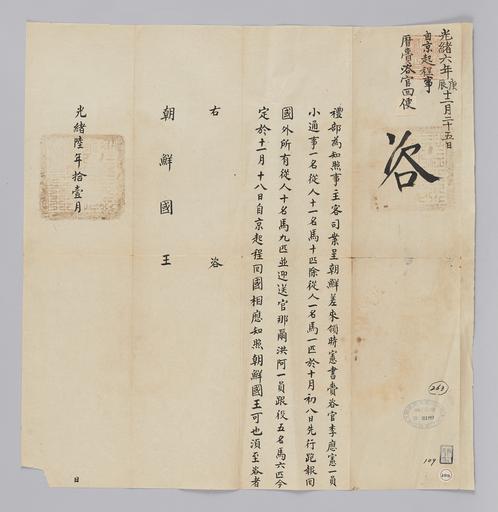 光緒六年庚辰十二月二十五日
自京起程事
曆賫咨官回便
咨
禮部為知照事主客司案呈朝鮮差來領時憲書賫咨官李應憲一員
小通事一名從人十一名馬十匹除從人一名馬一匹於十月初八日先行跑報回
國外所有從人十名馬九匹並迎送官那爾洪阿一員跟役五名馬六匹今
定於十一月十八日自京起程回國相應知照朝鮮國王可也須至咨者
右咨
朝鮮國王
光緒陸年拾壹月
日
263
109